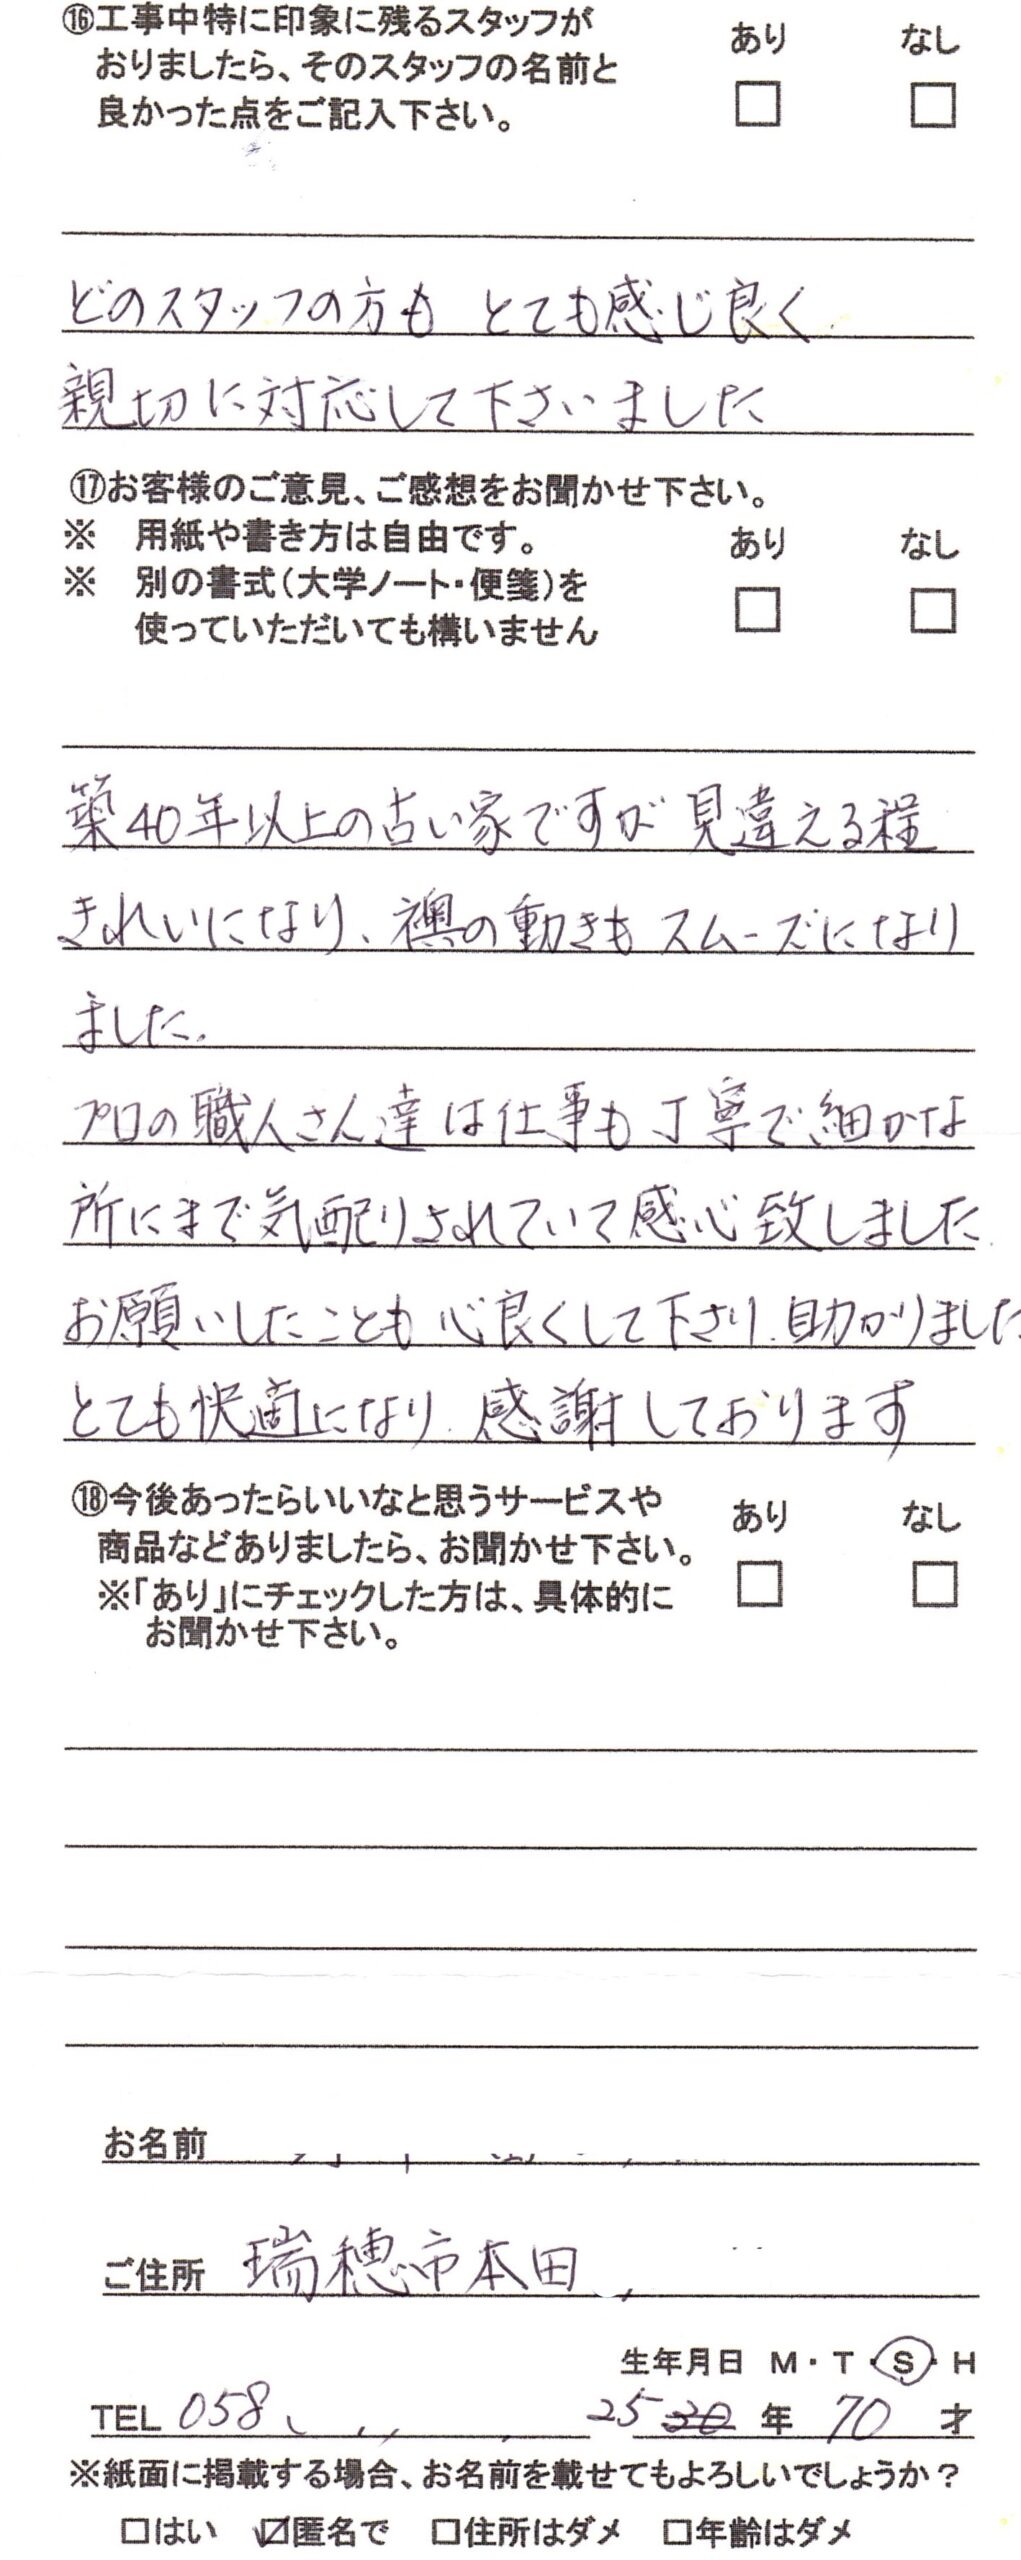 ⑯工事中特に印象に残るスタッフが
おりましたら、そのスタッフの名前と
良かった点をご記入下さい。
あり なし
どのスタッフの方も とても感じ良く
親切に対応して下さいました
⑰お客様のご意見、ご感想をお聞かせ下さい。
※ 用紙や書き方は自由です。
※ 別の書式(大学ノート・便箋)を
使っていただいても構いません
あり なし
築40年以上の古い家ですが 見違える程
きれいになり、襖の動きも スムーズになり
ました.
プロの職人さん達は仕事も丁寧で細かな
所にまで気配りされていて感心致しました
お願いしたことも 心良くして下さり、助かりました
とても快適になり、感謝しております
⑱今後あったらいいなと思うサービスや
商品などありましたら、お聞かせ下さい。
※「あり」にチェックした方は、具体的に
お聞かせ下さい。
あり なし
お名前
ご住所 瑞穂市本田
生年月日 M・T・S・H
TEL 058 25 30 年 70 才
※紙面に掲載する場合、お名前を載せてもよろしいでしょうか?
□はい ☑匿名で □住所はダメ □年齢はダメ